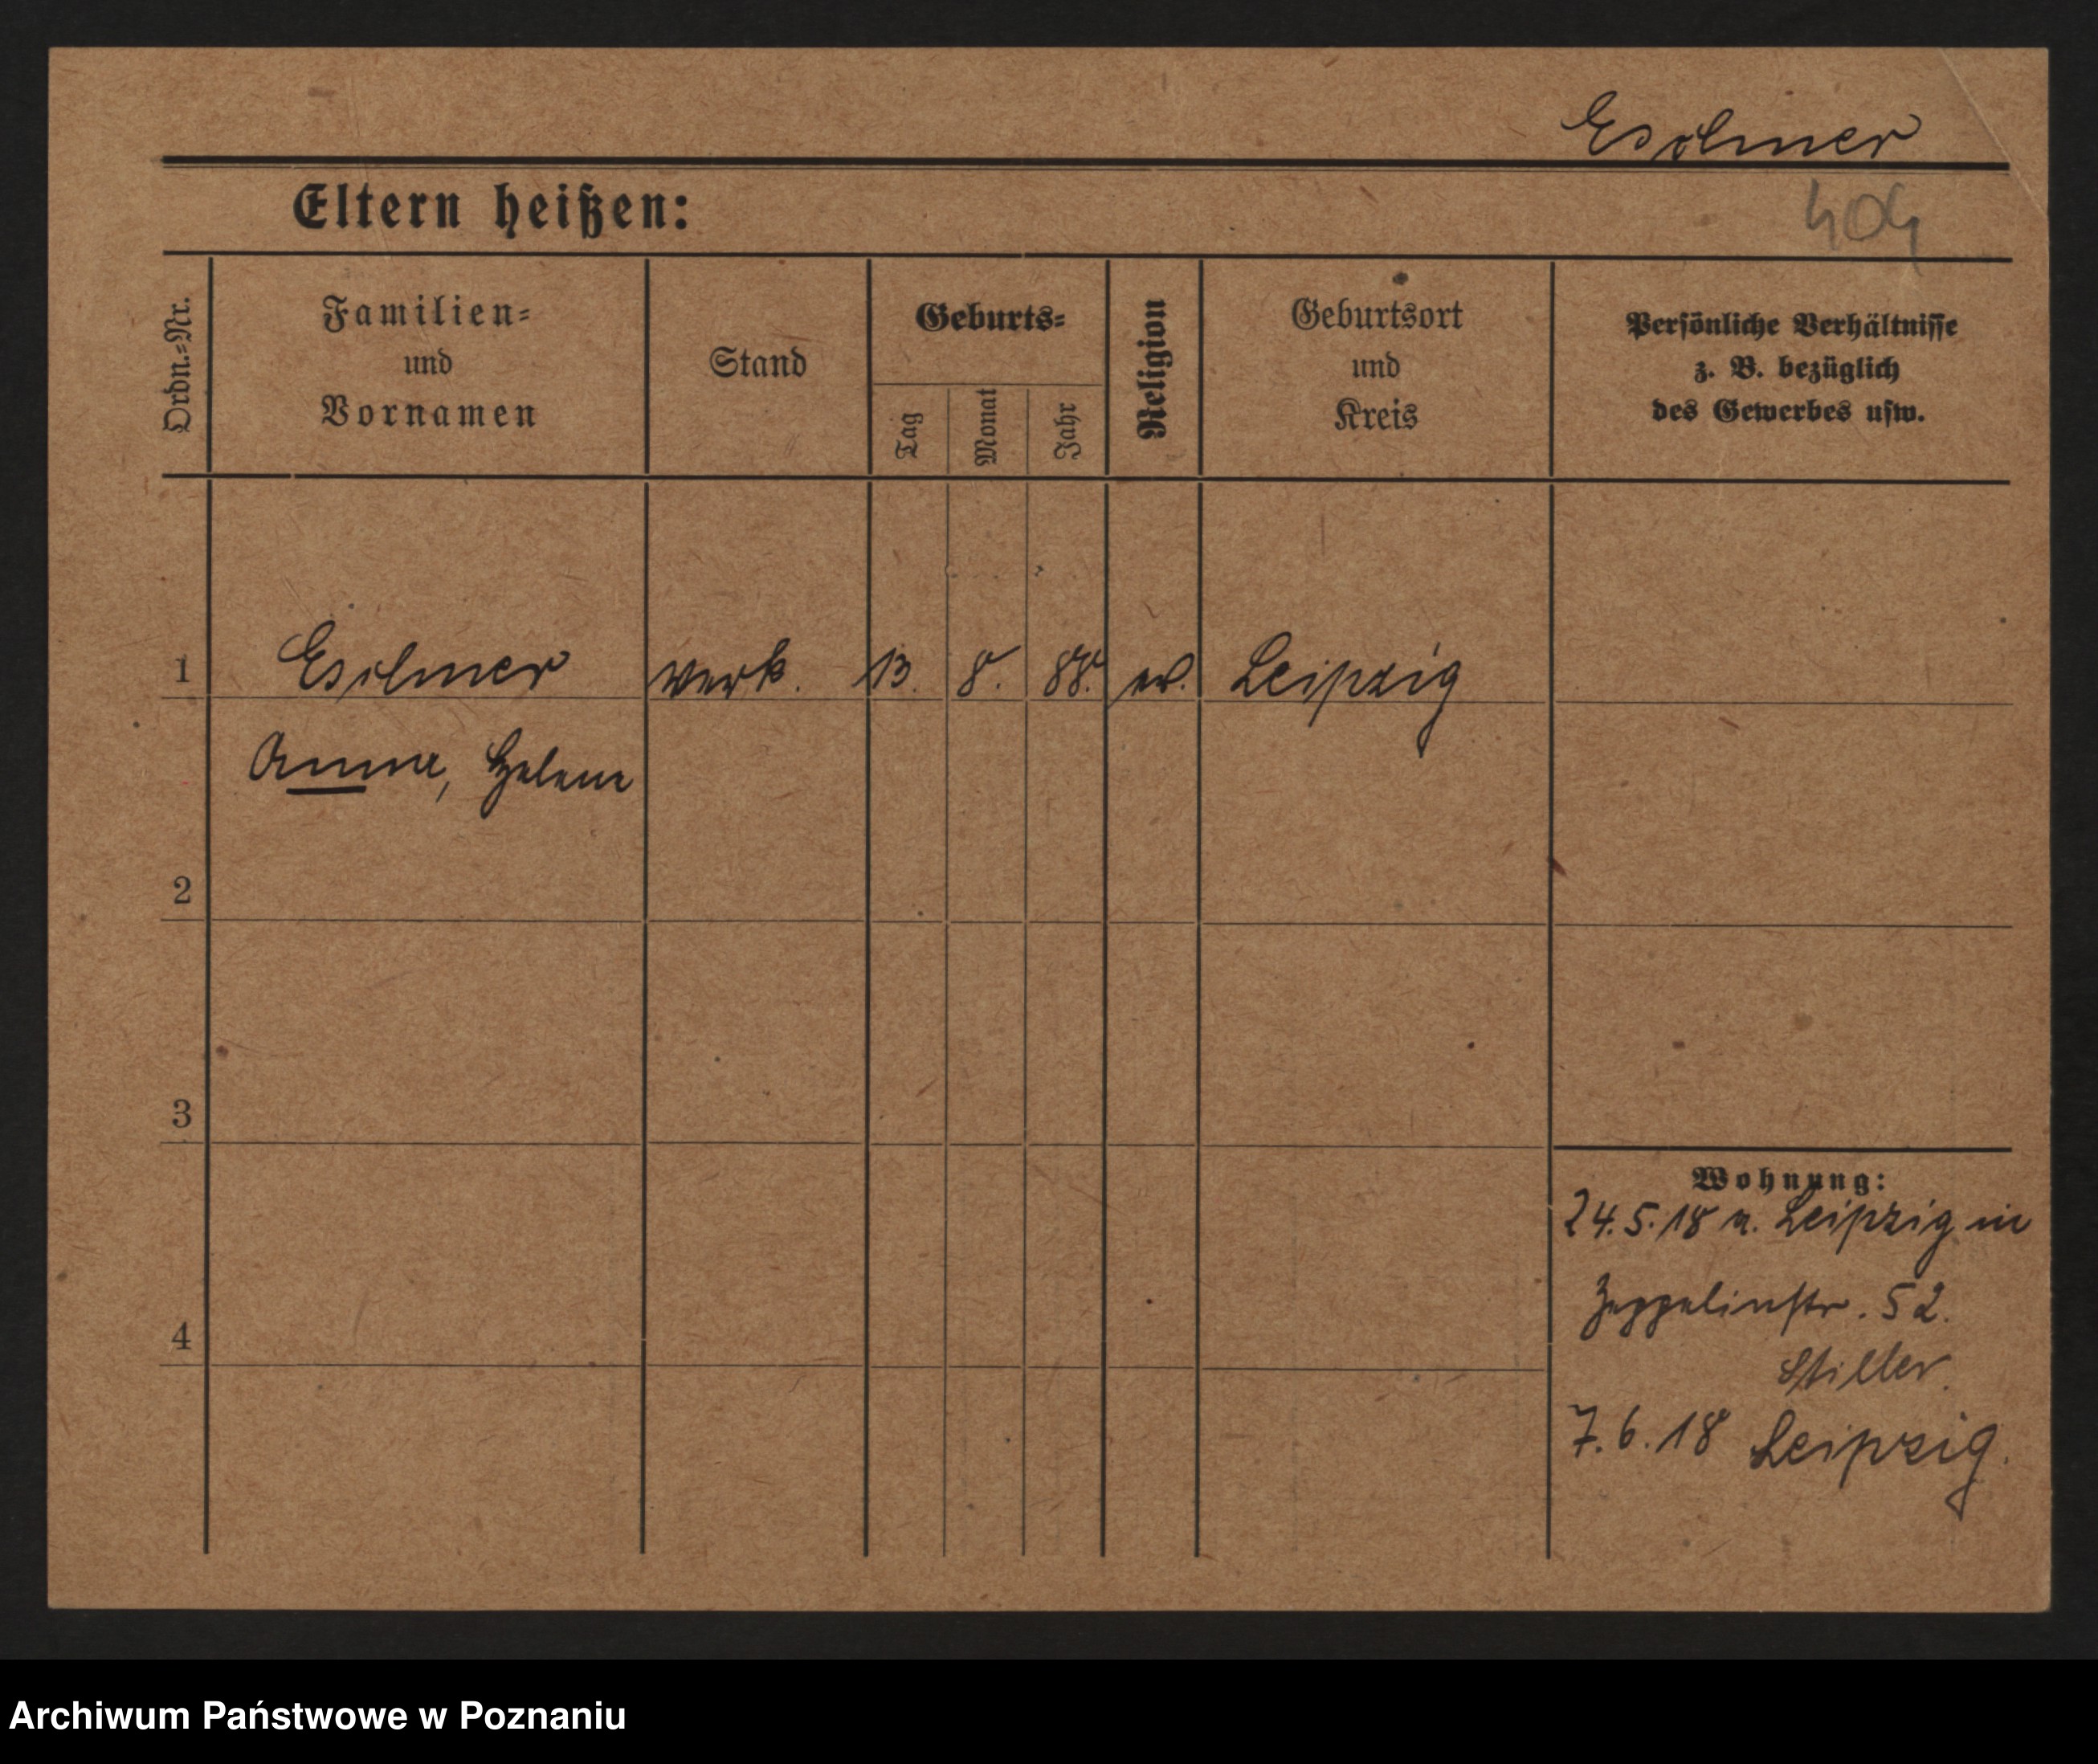 Eschner
Eltern heißen:
404
Ordn.=Nr.
Familien=
und
Vornamen
Stand
Geburts=
Tag
Monat
Jahr
Religion
Geburtsort
und
Kreis
Persönliche Verhältnisse
z. B. bezüglich
des Gewerbes usw.
1 verk. 13. 8. 88. ev. Leipzig
Anna, Helene
2
3
4
Wohnung:
24.5.18 a. Leipzig in
Zeppelinstr. 52.
Stiller.
7.6.18 Leipzig.
Archiwum Państwowe w Poznaniu